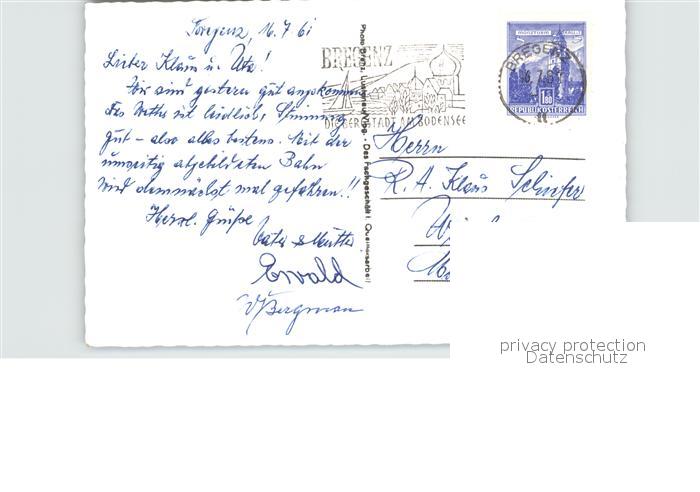 Bregenz, 16.7.61
Lieber Klaus u. Uta!
Wir sind gestern gut angekommen
Das Wetter ist leidlich, Stimmung
gut – also alles bestens. Mit der
umseitig abgebildeten Bahn
wird demnächst mal gefahren!!
Herzl. Grüße
Vater & Mutter
Ewald
Bergmann
Photo Branz, Das Fachgeschäft f. Qualitätsarbeit
BREGENZ
DIE BERGSTADT AM BODENSEE
BREGENZ
16.7.61
MÜNZTURM HALL I. T.
S 1.80
REPUBLIK ÖSTERREICH
Herrn
R. A. Klaus
privacy protection
Datenschutz